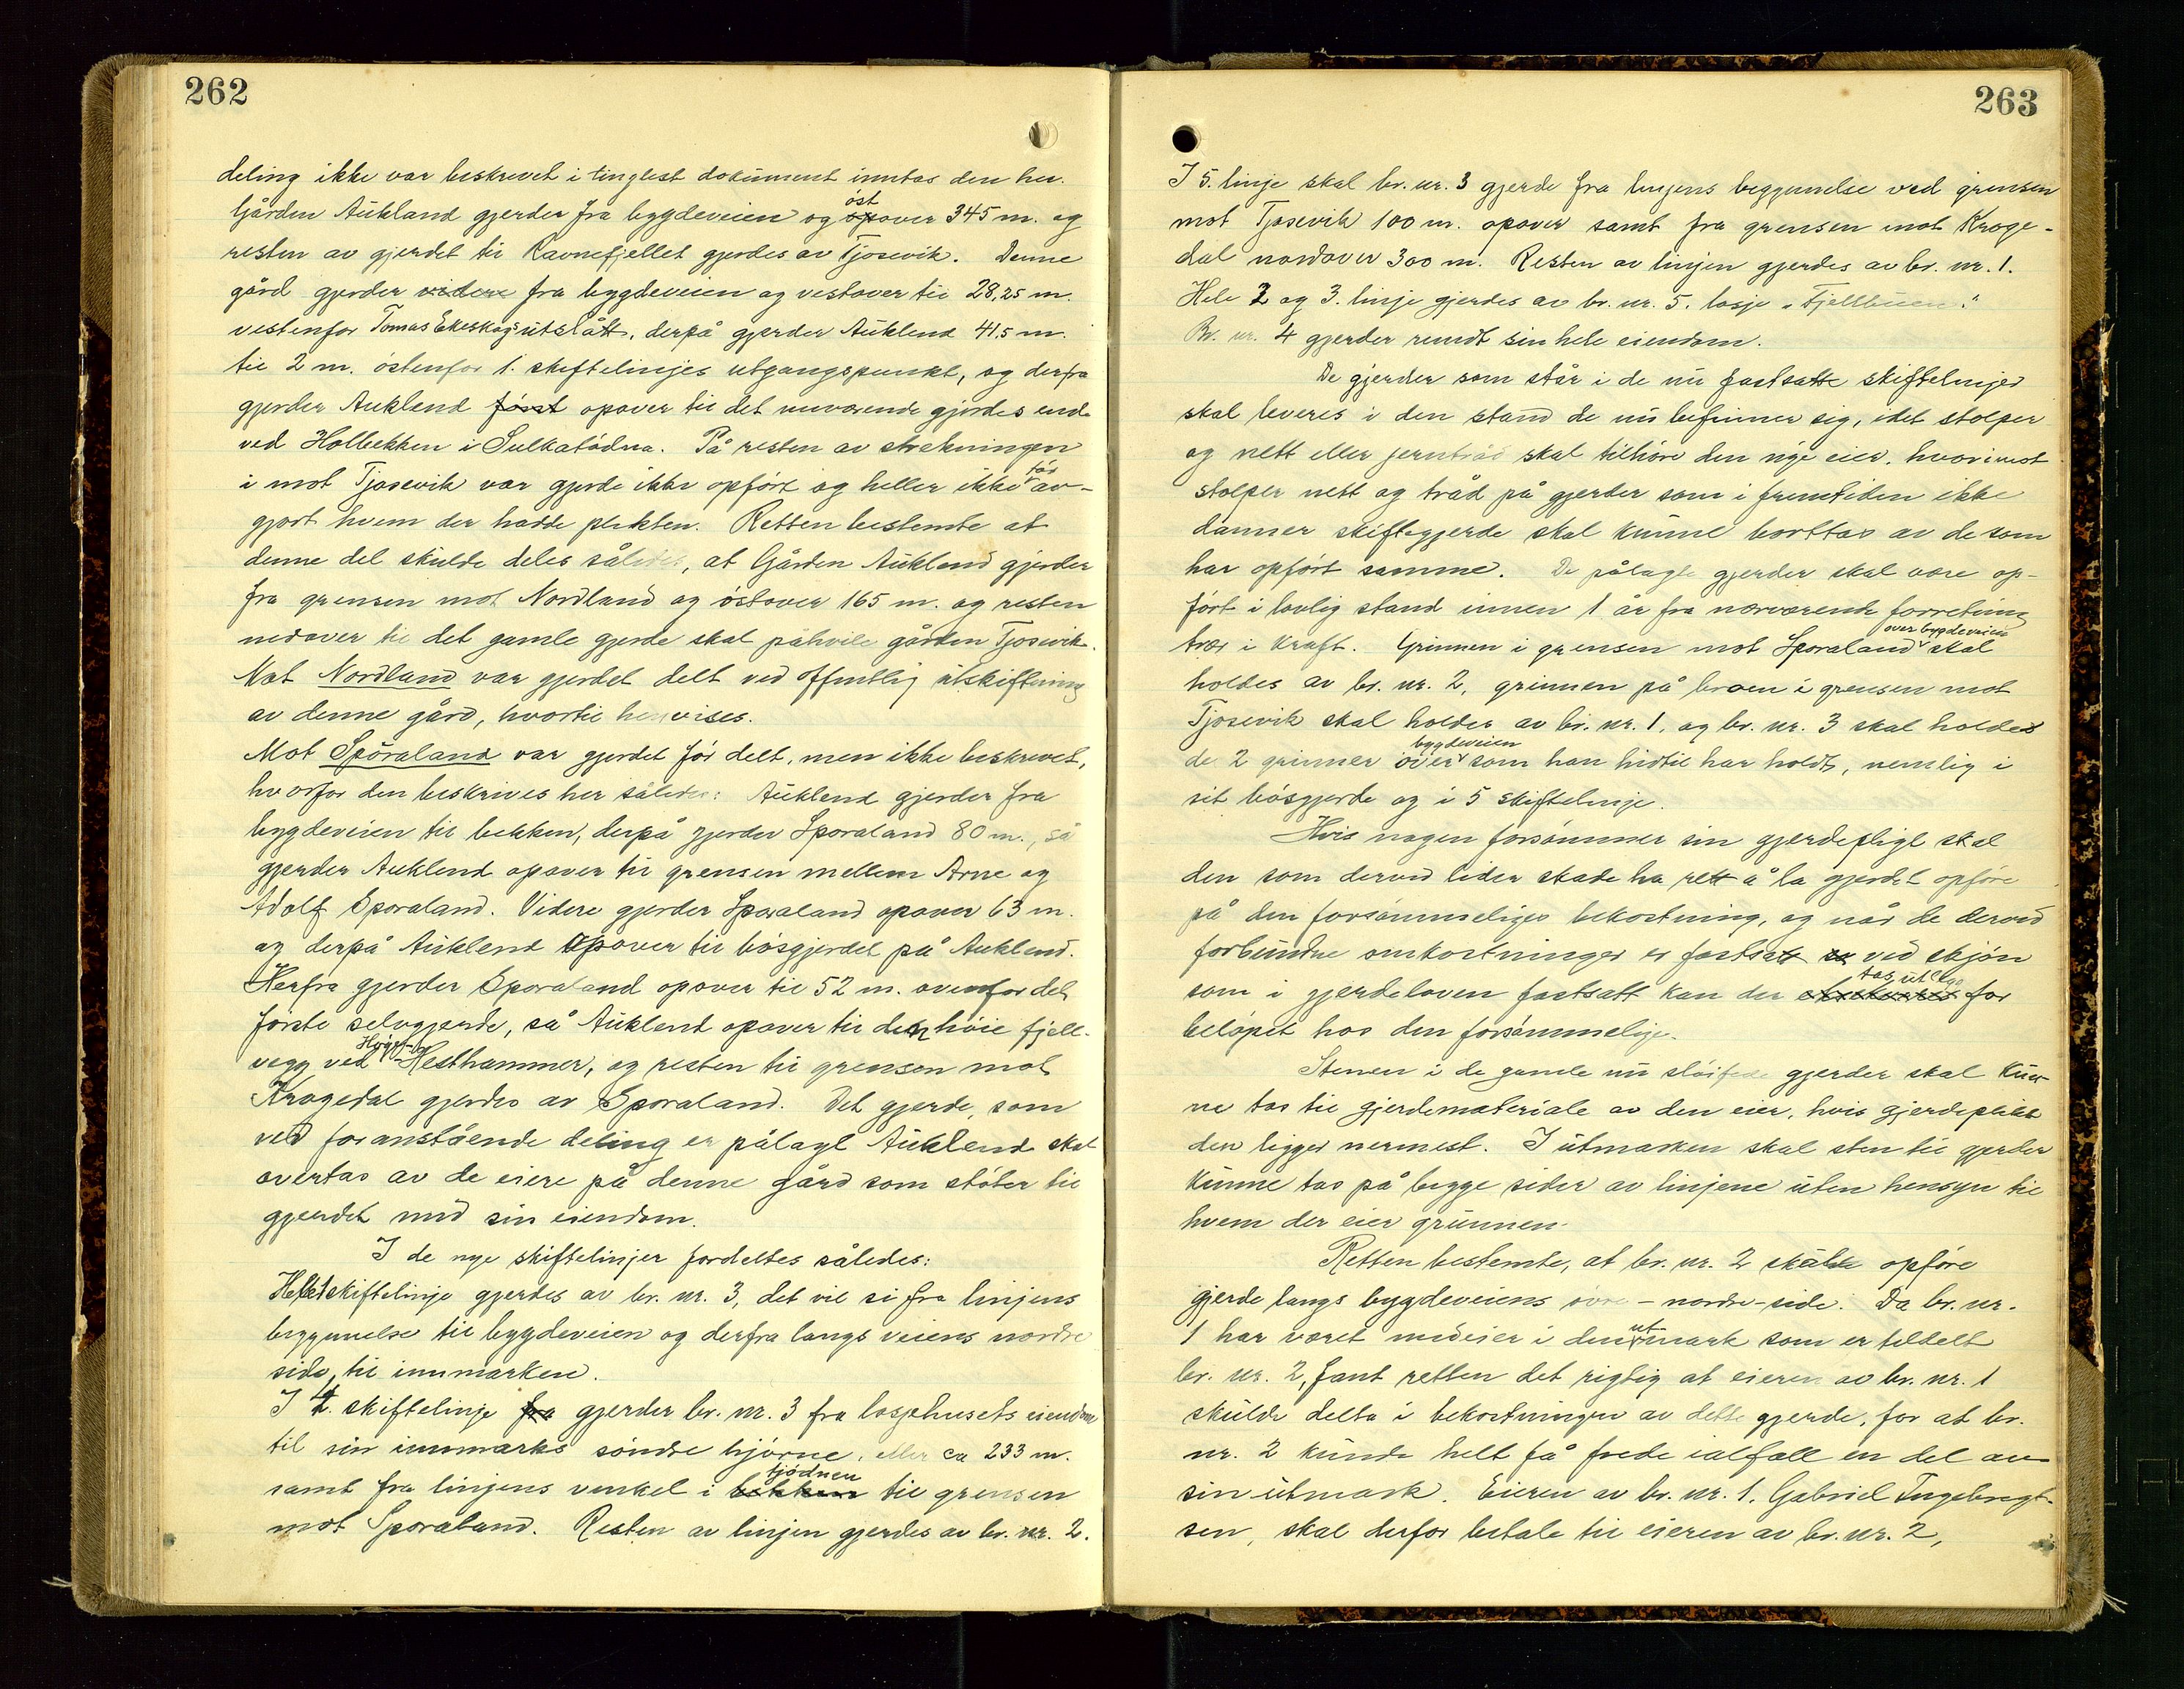 262
deling ikke var beskrevet i tinglest dokument inntas den her.
Gården Aukland gjerder fra bygdeveien og øst opover 345 m. og
resten av gjerdet til Ravnefjellet gjerdes av Tjosevik. Denne
gård gjerder videre fra bygdeveien og vestover til 28,25 m.
vestenfor Tomas Ekeskogs utslått, derpå gjerder Auklend 41,5 m.
til 2 m. östenfor 1. skiftelinjes utgangspunkt, og derfra
gjerder Aukland först opover til det nuværende gjerdes ende
ved Holbekken i Sulkatödna. På resten av strekningen
i mot Tjosevik var gjerde ikke opfört og heller ikke för av-
gjort hvem der hadde plikten. Retten bestemte at
denne del skulde deles således, at Gården Aukland gjerder
fra grensen mot Nordland og östover 165 m. og resten
nedover til det gamle gjerde skal påhvile gården Tjosevik.
Mot Nordland var gjerdet delt ved offentlig utskiftning
av denne gård, hvortil henvises.
Mot Sporaland var gjerdet för delt, men ikke beskrevet,
hvorfor den beskrives her således: Auklend gjerder fra
bygdeveien til bekken, derpå gjerder Sporaland 80 m., så
gjerder Auklend opover til grensen mellem Arne og
Adolf Sporaland. Videre gjerder Sporaland opover 63 m.
og derpå Auklend opover til bösgjerdet på Auklend.
Herfra gjerder Sporaland opover til 52 m. ovenfor det
förste selvgjerde, så Auklend opover til den höie fjell-
vegg ved Hesthammer, og resten til grensen mot
Krogedal gjerdes av Sporaland. Det gjerde, som
ved foranstående deling er pålagt Auklend skal
overtas av de eiere på denne gård som stöter til
gjerdet med sin eiendom.
I de nye skiftelinjer fordeltes således:
Hele 1 skiftelinje gjerdes av br. nr. 3, det vil si fra linjens
begynnelse til bygdeveien og derfra langs veiens nordre
side, til innmarken.
I 4. skiftelinje fra gjerder br. nr. 3 fra losjehusets eiendom
til sin innmarks söndre hjörne, eller ca 233 m.
samt fra linjens vinkel i bekken tjödnen til grensen
mot Sporaland. Resten av linjen gjerdes av br. nr. 2.
263
I 5. linje skal br. nr. 3 gjerde fra linjens begynnelse ved grensen
mot Tjosevik 100 m. opover samt fra grensen mot Kroge-
dal nordover 300 m. Resten av linjen gjerdes av br. nr. 1.
Hele 2 og 3. linje gjerdes av br. nr. 5. losje „Fjellbuen".
Br. nr. 4 gjerder rundt sin hele eiendom.
De gjerder som står i de nu fastsatte skiftelinjer
skal leveres i den stand de nu befinner sig, idet stolper
og nett eller jerntråd skal tilhöre den nye eier, hvorimot
stolper nett og tråd på gjerder som i fremtiden ikke
danner skiftegjerde skal kunne borttas av de som
har opfört samme. De pålagte gjerder skal være op-
fört i lovlig stand innen 1 år fra nærværende forretning
trær i kraft. Grinnen i grensen mot Sporaland over bygdeveien skal
holdes av br. nr. 2, grinnen på broen i grensen mot
Tjosevik skal holdes av br. nr. 1, og br. nr. 3 skal holdes
de 2 grinner over bygdeveien som han hidtil har holdt, nemlig i
sit bösgjerde og i 5 skiftelinje.
Hvis nogen forsömmer sin gjerdepligt skal
den som derved lider skade ha rett å la gjerdet opföre
på den forsömmeliges bekostning, og når de derved
forbundne omkostninger er fastsatt ved skjön
som i gjerdeloven fastsatt kan der tas utlegg for
belöpet hos den forsömmelige.
Stenen i de gamle nu slöifede gjerder skal kun-
ne tas til gjerdemateriale av den eier, hvis gjerdeplikt
den ligger nermest. I utmarken skal sten til gjerder
kunne tas på begge sider av linjene uten hensyn til
hvem der eier grunnen.
Retten bestemte, at br. nr. 2 skulde opföre
gjerde langs bygdeveiens övre - nordre - side. Da br. nr.
1 har været medeier i den utmark som er tildelt
br. nr. 2, fant retten det rigtig at eieren av br. nr. 1
skulde delta i bekostningen av dette gjerde, for at br.
nr. 2 kunde helt få frede ialfall en del av
sin utmark. Eieren av br. nr. 1, Gabriel Ingebregt-
sen, skal derfor betale til eieren av br. nr. 2,